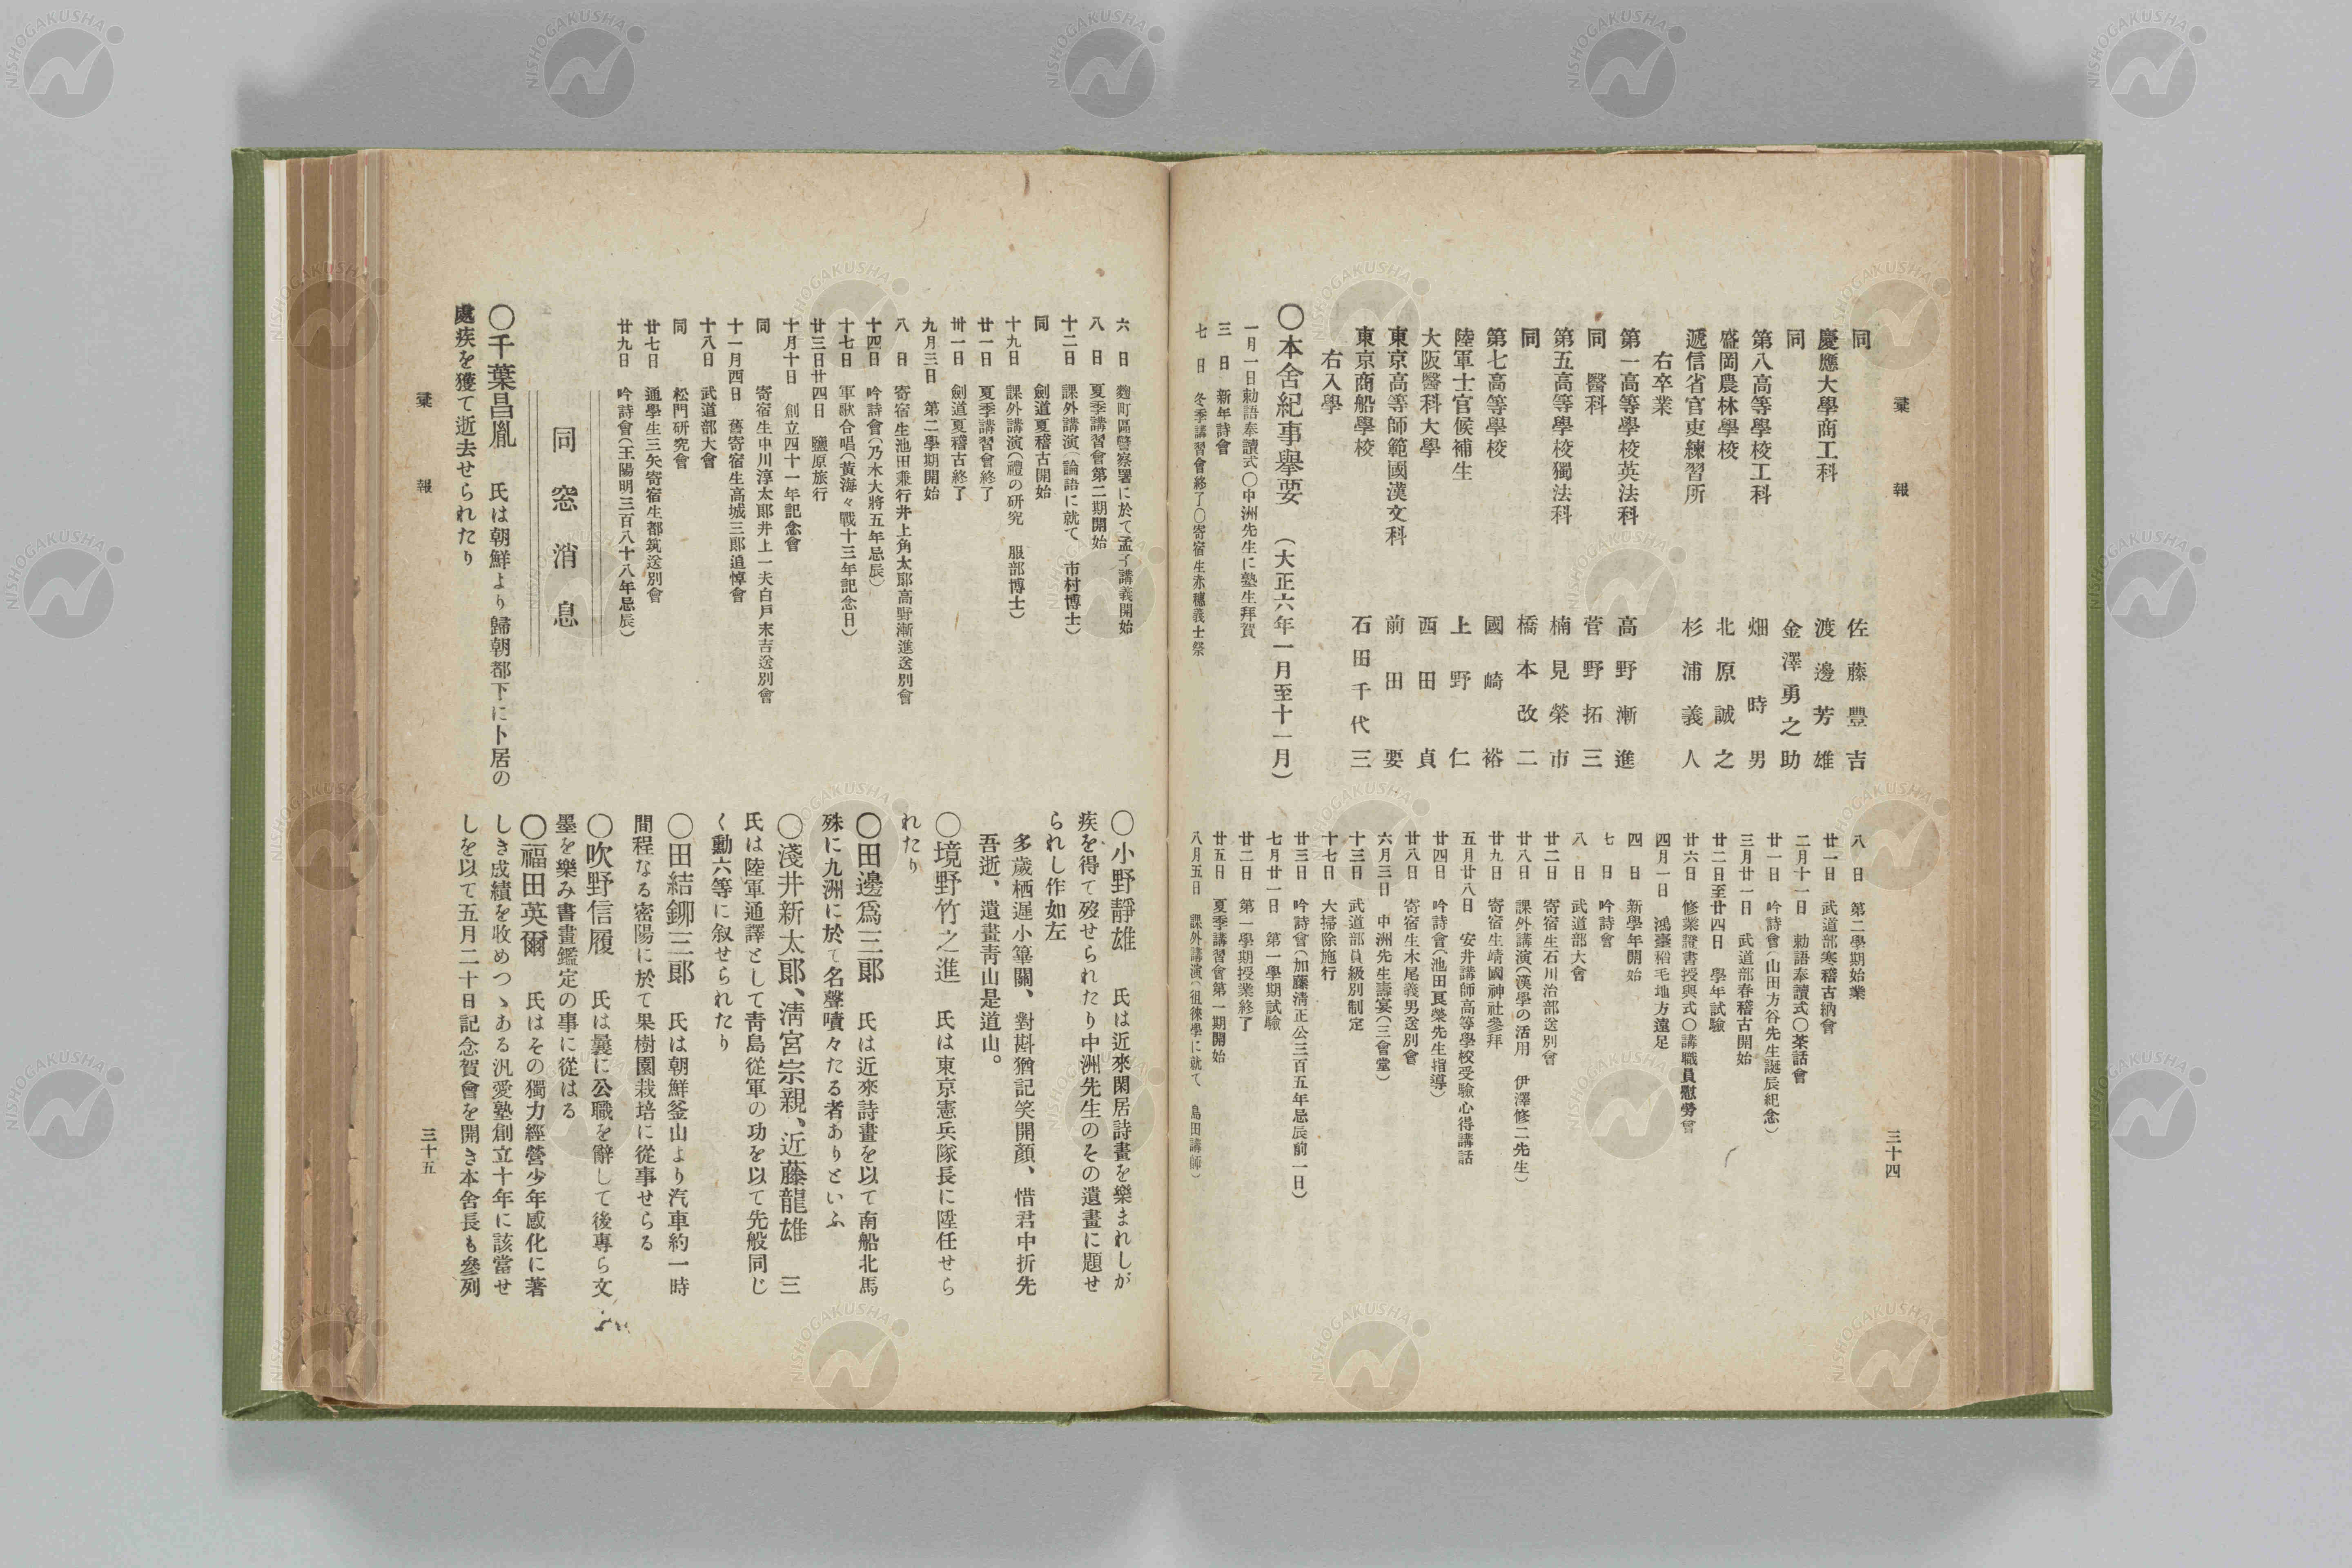 彙報
三十四
同　佐藤豐吉
慶應大學商工科　渡邊芳雄
同　金澤勇之助
第八高等學校工科　畑時男
盛岡農林學校　北原誠之
遞信省官吏練習所　杉浦義人
右卒業
第一高等學校英法科　高野漸進
同　醫科　菅野拓三
第五高等學校獨法科　楠見榮市
同　橋本改二
第七高等學校　國崎裕
陸軍士官候補生　上野仁
大阪醫科大學　西田貞
東京高等師範國漢文科　前田要
東京商船學校　石田千代三
右入學
〇本舍紀事擧要　（大正六年一月至十一月）
一月一日勅語奉讀式〇中洲先生に塾生拜賀
三　日　新年詩會
七　日　冬季講習會終了〇寄宿生赤穗義士祭
八　日　第二學期始業
廿一日　武道部寒稽古納會
二月十一日　勅語奉讀式〇茶話會
廿一日　吟詩會（山田方谷先生誕辰紀念）
三月廿一日　武道部春稽古開始
廿二日至廿四日　學年試驗
廿六日　修業證書授與式〇講職員慰勞會
四月一日　鴻臺稻毛地方遠足
四　日　新學年開始
七　日　吟詩會
八　日　武道部大會
廿二日　寄宿生石川治部送別會
廿八日　課外講演（漢學の活用　伊澤修二先生）
廿九日　寄宿生靖國神社參拜
五月廿八日　安井講師高等學校受驗心得講話
廿四日　吟詩會（池田夐榮先生指導）
廿八日　寄宿生木尾義男送別會
六月三日　中洲先生壽宴（三會堂）
十三日　武道部員級別制定
十七日　大掃除施行
廿三日　吟詩會（加藤淸正公三百五年忌辰前一日）
七月廿一日　第一學期試驗
廿二日　第一學期授業終了
廿五日　夏季講習會第一期開始
八月五日　課外講演（徂徠學に就て　島田講師）
六　日　麴町區警察署に於て孟子講義開始
八　日　夏季講習會第二期開始
十二日　課外講演（論語に就て　市村博士）
同　劍道夏稽古開始
十九日　課外講演（禮の研究　服部博士）
廿一日　夏季講習會終了
卅一日　劍道夏稽古終了
九月三日　第二學期開始
八　日　寄宿生池田兼行井上角太郞高野漸進送別會
十四日　吟詩會（乃木大將五年忌辰）
十七日　軍歌合唱（黃海々戰十三年記念日）
廿三日廿四日　鹽原旅行
十月十日　創立四十一年記念會
同　寄宿生中川淳太郞井上一夫白戶末吉送別會
十一月四日　舊寄宿生高城三郞追悼會
十八日　武道部大會
同　松門硏究會
廿七日　通學生三矢寄宿生都筑送別會
廿九日　吟詩會（王陽明三百八十八年忌辰）
同窓消息
〇千葉昌胤　氏は朝鮮より歸朝都下に卜居の
處疾を獲て逝去せられたり
〇小野靜雄　氏は近來閑居詩畫を樂まれしが
疾を得て歿せられたり中洲先生のその遺畫に題せ
られし作如左
多歲栖遲小篳關、對斟猶記笑開顏、惜君中折先
吾逝、遺畫靑山是道山。
〇境野竹之進　氏は東京憲兵隊長に陞任せら
れたり
〇田邊爲三郞　氏は近來詩畫を以て南船北馬
殊に九洲に於て名聲嘖々たる者ありといふ
〇淺井新太郞、淸宮宗親、近藤龍雄　三
氏は陸軍通譯として靑島從軍の功を以て先般同じ
く勳六等に叙せられたり
〇田結鉚三郞　氏は朝鮮釜山より汽車約一時
間程なる密陽に於て果樹園栽培に從事せらる
〇吹野信履　氏は曩に公職を辭して後專ら文
墨を樂み書畫鑑定の事に從はる
〇福田英爾　氏はその獨力經營少年感化に著
しき成績を收めつゝある汎愛塾創立十年に該當せ
しを以て五月二十日記念賀會を開き本舍長も參列
彙報
三十五
NISHOGAKUSHA